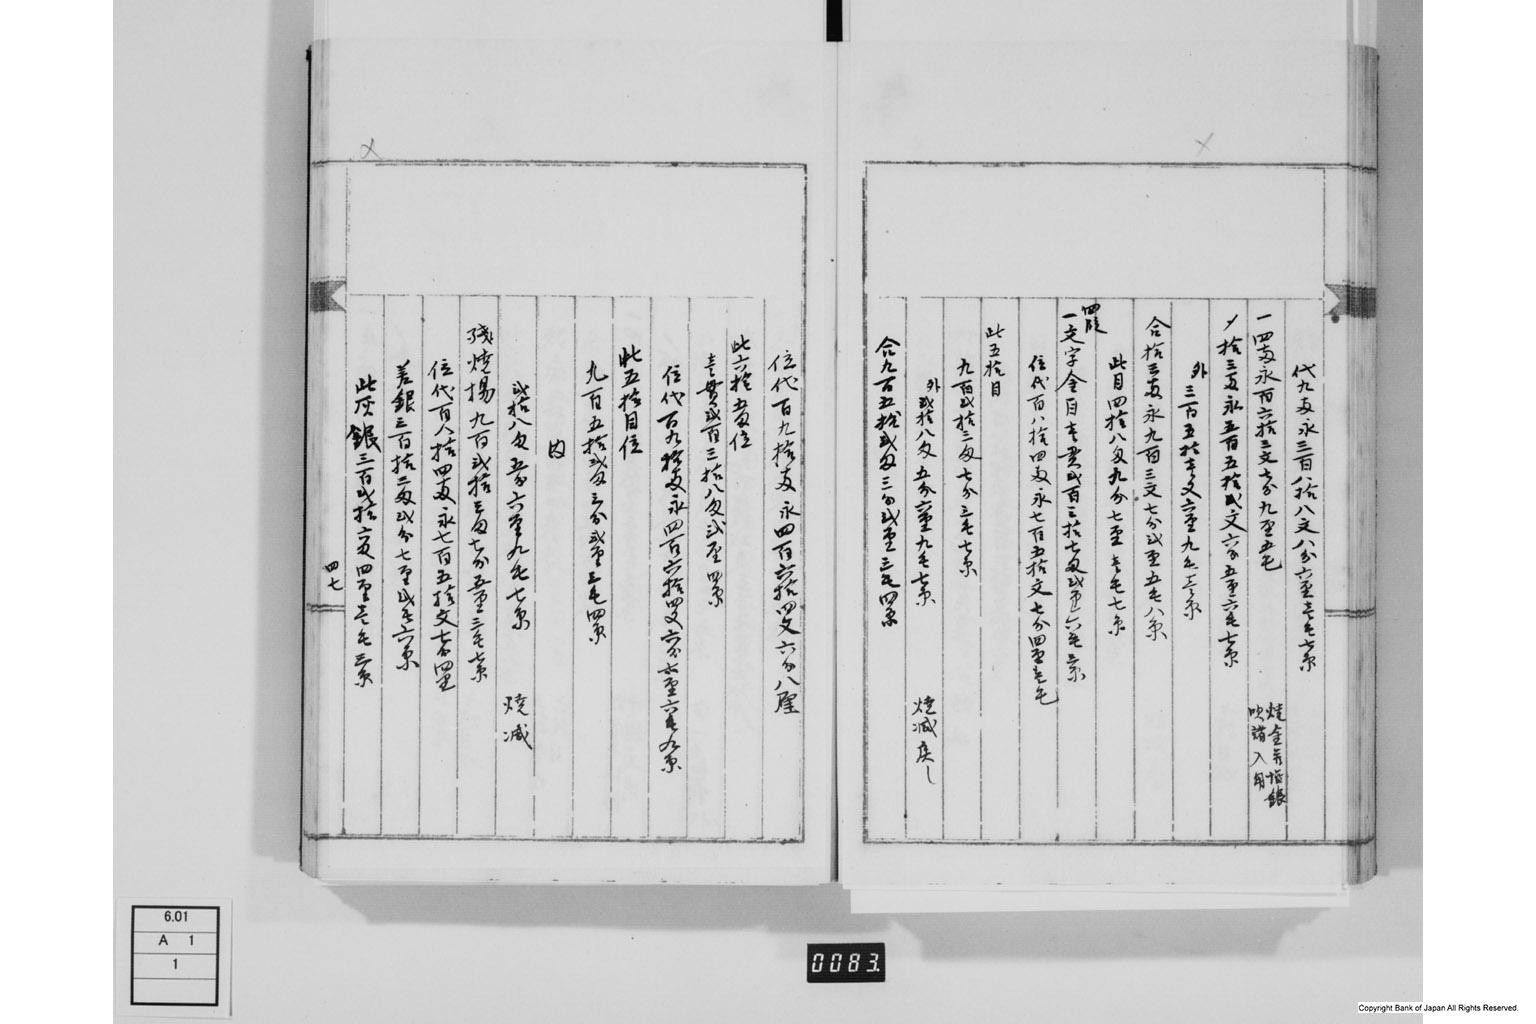 代九両永三百八拾八文八分六厘壱毛七糸
一四両永百六拾三文七分九厘五毛
焼金并塩銀
吹諸入用
〆拾三両永五百五拾弐文六分五厘六毛七糸
外三百五拾壱文六厘九毛壱糸
合拾三両永九百三文七分弐厘五毛八糸
此目四拾八匁九分七厘壱毛七糸
四段
一文字金目壱貫弐百三拾七匁弐厘六毛糸
位代百八拾四両永七百五拾文七分四厘壱毛
此五拾目
九百弐拾三匁七分三毛七糸
外弐拾八匁五分六厘九毛七糸
焼減戻し
合九百五拾弐匁三分弐厘三毛四糸
位代百九拾両永四百六拾四文六分八厘
此六拾五両位
壱貫弐百三拾八匁弐厘四糸
位代百九拾両永四百六拾四文六分六厘六毛九糸
此五拾目位
九百五拾弐匁三分弐厘三毛四糸
内
弐拾八匁五分六厘九毛七糸
焼減
残焼揚九百弐拾三匁七分五厘三毛七糸
位代百八拾四両永七百五拾文七分四厘
差銀三百拾二匁弐分七厘弐毛六糸
此灰銀三百弐拾六匁四厘壱毛三糸
四七
6.01
A 1
1
0083.
Copyright Bank of Japan All Rights Reserved.